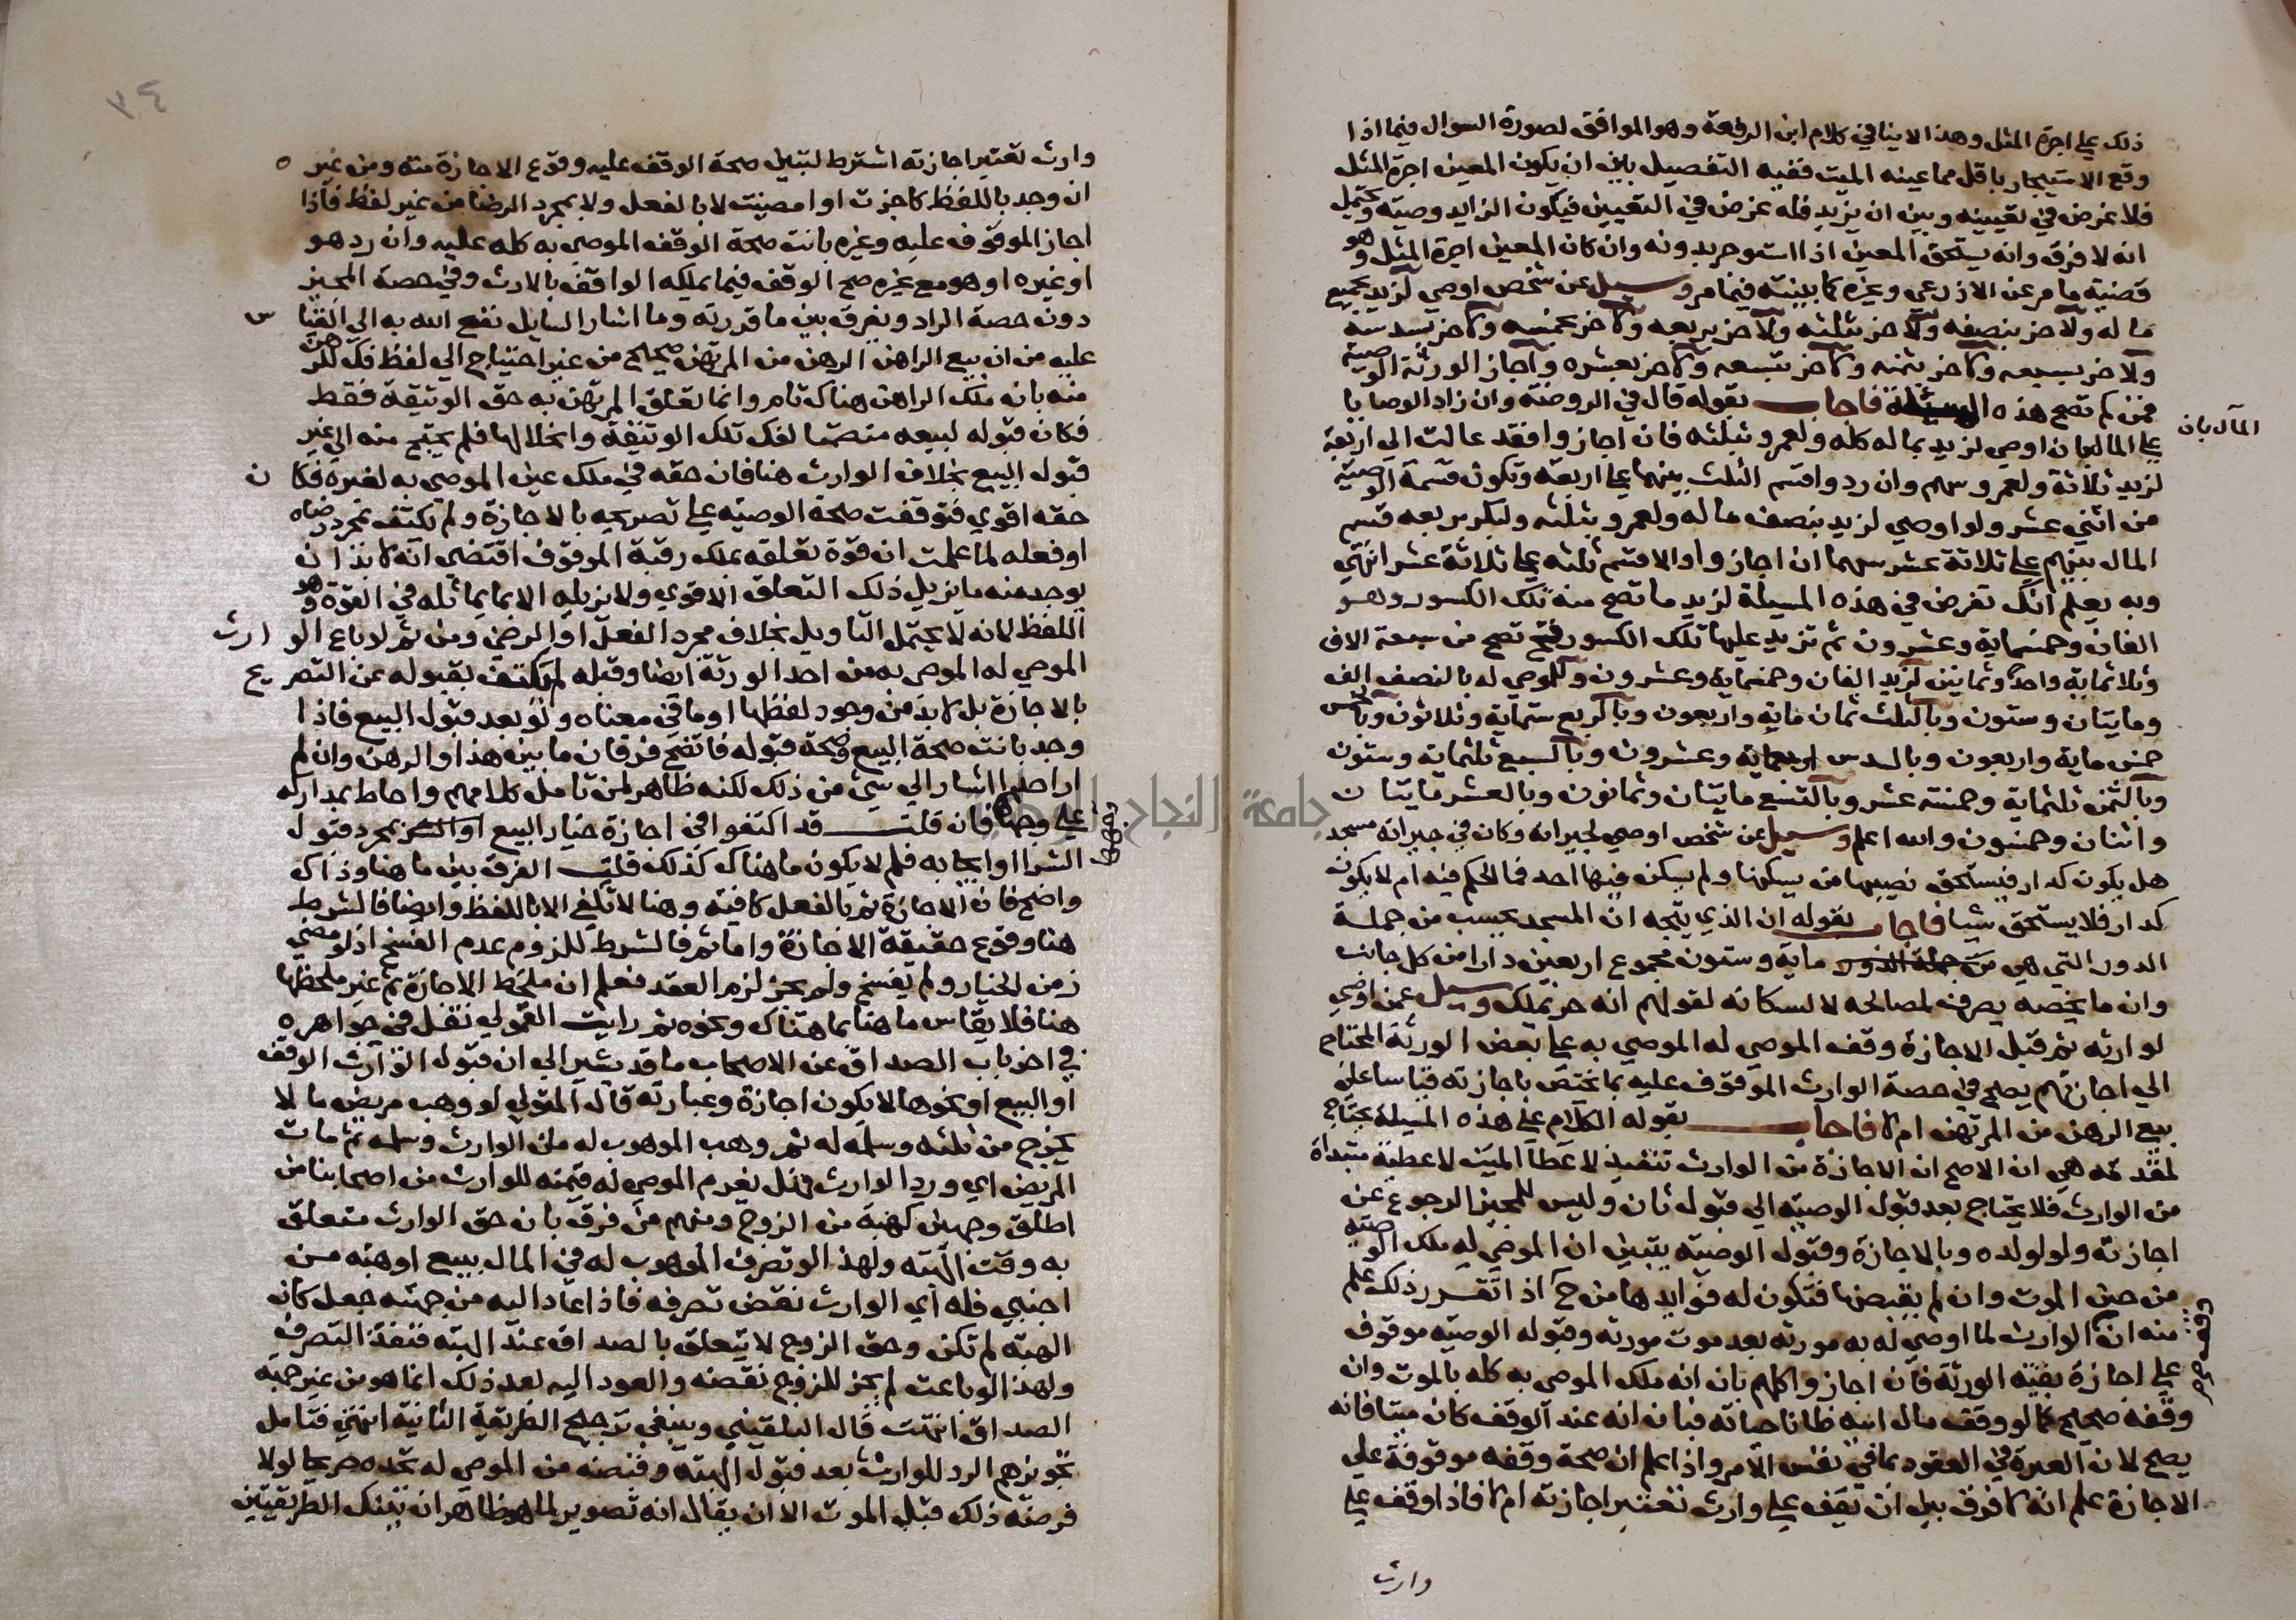 ذلك على اجرة المثل وهذا لا ينافي كلام ابن الرفعة وهو الموافق لصورة السوال فيما اذا
وقع الاستيجار باقل مما عينه الميت ففيه التفصيل بين ان يكون المعين اجرة المثل
فلا غرض في تعيينه وبين ان يزيد فله غرض في التعيين فيكون الزايد وصية ويحتمل
انه لا فرق وانه يستحق المعين اذا استوجر بدونه وان كان المعين اجرة المثل وهو
قضية ما مر عن الاذرعي وغيره كما بينته فيما مر وسيل عن شخص اوصي لزيد بجميع
ماله ولاخر بنصفه ولاخر بثلثه ولاخر بربعه ولاخر بخمسه ولاخر بسدسه
ولاخر بسبعه ولاخر بثمنه ولاخر بتسعه ولاخر بعشره واجاز الورثة الوصية
فمن كم تصح هذه المسئلة فاجاب بقوله قال في الروضة وان زاد الوصايا
على المال بان اوصي لزيد بماله كله ولعمرو بثلثه فان اجازوا فقد عالت الي اربعة
المال بان
لزيد ثلاثة ولعمرو سهم وان ردوا قسم الثلث بينهما على اربعة وتكون قسمة الوصية
من اثني عشر ولو اوصي لزيد بنصف ماله ولعمرو بثلثه ولبكر بربعه قسم
المال بينهم على ثلاثة عشر سهما ان اجازوا والا قسم ثلثه على ثلاثة عشر انتهي
وبه يعلم انك تفرض في هذه المسيلة لزيد ما تصح منه تلك الكسور وهو
الفان وخمسماية وعشرون ثم تزيد عليها تلك الكسور فتصح من سبعة الاف
وثلاثماية واحد وثمانين لزيد الفان وخمسماية وعشرون وللموصي له بالنصف الف
ومايتان وستون وبالثلث ثمان ماية واربعون وبالربع ستماية وثلاثون وبالخمس
خمس ماية واربعون وبالسدس اربعماية وعشرون وبالسبع ثلثماية وستون
وبالثمن ثلثماية وخمسة عشر وبالتسع مايتان وثمانون وبالعشر مايتان
واثنان وخمسون والله اعلم وسيل عن شخص اوصي لجيرانه وكان في جيرانه مسجد
هل يكون كدار فيستحق نصيبها من يسكنها ولم يسكن فيها احد فما الحكم فيه ام لا يكون
كدار فلا يستحق شيا فاجاب بقوله ان الذي يتجه ان المسجد يحسب من جملة
الدور التي هي ماية وستون مجموع اربعين دارا من كل جانب
وان ما يخصه يصرف لمصالحه لا لسكانه لقولهم انه حر يملك وسيل عمن اوصي
لوارثه ثم قبل الاجازة وقف الموصي له الموصي به على بعض الورثة المحتاج
الي اجازتهم يصح في حصة الوارث الموقوف عليه بما يختص باجازته قياسا على
بيع الرهن من المرتهن ام لا فاجاب بقوله الكلام على هذه المسيلة يحتاج
لمقدمة هي ان الاصح ان الاجازة من الوارث تنفيذ لاعطا الميت لا عطية مبتداة
من الوارث فلا يحتاج بعد قبول الوصية الي قبول ثان وليس للمجيز الرجوع عن
اجازته ولو لولده وبالاجازة وقبول الوصية يتبين ان الموصي له ملك الوصية
من حين الموت وان لم يقبضها فتكون له فوايدها من ح اذا تقرر ذلك علم
منه ان الوارث لما اوصي له به مورثه بعد موت مورثه وقبوله الوصية موقوف
على اجازة بقية الورثة فان اجازوا كلهم بان انه ملك الموصي به كله بالموت وان
وقفه صحيح كما لو وقف مال ابيه ظانا حياته فبان انه عند الوقف كان ميتا فانه
يصح لان العبرة في العقود بما في نفس الامر واذا علم ان صحة وقفه موقوفة على
الاجازة علم انه لا فرق بين ان يقف على وارث تعتبر اجازته ام لا فاذا وقف على
وارث
٣٤
وارث تعتبر اجازته اشترط لتبين صحة الوقف عليه وقوع الاجازة منه ومن غيره
ان وجد باللفظ كاجزت او امضيت لا بالفعل ولا بمجرد الرضا من غير لفظ فاذا
اجاز الموقوف عليه وغيره بانت صحة الوقف الموصي به كله عليه وان رد هو
او غيره او هو مع غيره صح الوقف فيما يملكه الواقف بالارث وفي حصة المجيز
دون حصة الراد ويفرق بين ما قررته وما اشار السايل نفع الله به الي القياس
عليه من ان بيع الراهن الرهن من المرتهن صحيح من غير احتياج الي لفظ فك للرهن
منه بان ملك الراهن هناك تام وانما تعلق المرتهن به حق الوثيقة فقط
فكان قبوله لبيعه متضمنا لفك تلك الوثيقة وانحلالها فلم يحتج منه الي غير
قبول البيع بخلاف الوارث هنا فان حقه في ملك عين الموصي به لغيره فكان
حقه اقوي فتوقفت صحة الوصية على تصريحه بالاجازة ولم نكتف بمجرد رضاه
او فعله لما علمت ان قوة تعلقه بملك رقبة الموقوف اقتضي انه لا بد ان
يوجد منه ما يزيل ذلك التعلق الاقوي ولا يزيله الا ما يماثله في القوة وهو
اللفظ لانه لا يحتمل التاويل بخلاف مجرد الفعل او الرضي ومن ثم لو باع الوارث
الموصي له الموصي به من احد الورثة ايضا وقبله لم يكتف بقبوله عن التصريح
بالاجازة بل لا بد من وجود لفظها او ما في معناه ولو بعد قبول البيع فاذا
وجد بانت صحة البيع وصحة قبوله فاتضح فرقان ما بين هذا والرهن وان لم
ار احدا اشار الي شي من ذلك لكنه ظاهر لمن تامل كلامهم واحاط بمداركه
على وجهها فان قلت قد اكتفوا في اجازة خيار البيع بمجرد قبول
الشرا او ايجابه فلم لا يكون ما هناك كذلك قلت الفرق بين ما هنا وذاك
واضح فان الاجازة ثم بالفعل كافية وهنا لا تكفي الا باللفظ وايضا فالشرط
هنا وقوع حقيقة الاجازة واما ثم فالشرط للزوم عدم الفسخ اذ لو مضي
زمن الخيار ولم يفسخ ولم يجز لزم العقد فعلم ان ملحظ الاجازة ثم غير ملحظها
هنا فلا يقاس ما هنا بما هناك ونحوه ثم رايت القمولي نقل في جواهره
في اخر باب الصداق عن الاصحاب ما قد يشير الي ان قبول الوارث الوقف
او البيع او نحوها لا يكون اجازة وعبارته قال المتولي لو وهب مريض مالا
يخرج من ثلثه وسلمه له ثم وهب الموهوب له من الوارث وسلمه ثم مات
المريض اي ورد الوارث فهل يغرم الموصي له قيمته للوارث من اصحابنا من
اطلق وجهين كهبة من الزوج ومنهم من فرق بان حق الوارث متعلق
به وقت الهبة ولهذا لو تصرف الموهوب له في المال ببيع او هبة من
اجنبي فله اي الوارث نقض تصرفه فاذا عاد اليه من جهته جعل كان
الهبة لم تكن وحق الزوج لا يتعلق بالصداق عند الهبة فنفذ التصرف
ولهذا لو باعت لم يجز للزوج نقضه والعود اليه بعد ذلك انما هو من غير جهة
الصداق انتهت قال البلقيني وينبغي ترجيح الطريقة الثانية انتهي فتامل
تجويزهم الرد للوارث بعد قبوله الهبة وقبضه من الموصي له تجده صريحا لولا
فرضه ذلك قبل الموت الا ان يقال انه تصوير لما هو ظاهر ان تينك الطريقتين